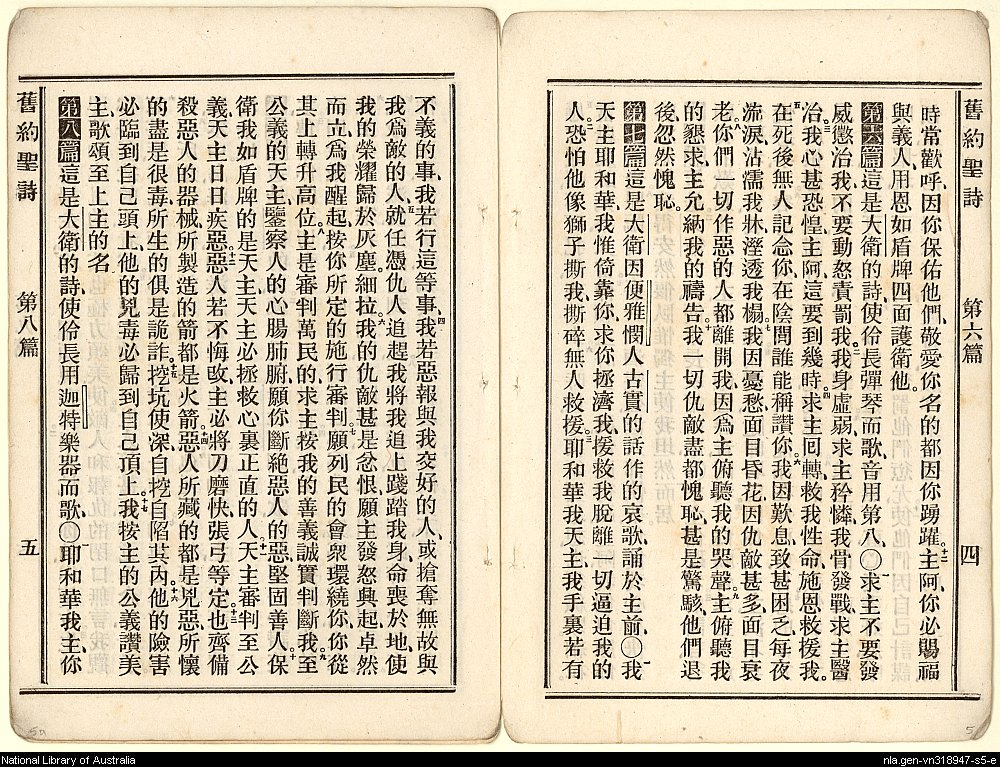 舊約聖詩 第六篇 四
時常歡呼、因你保佑他們、敬愛你名的都因你踴躍。十二主阿、你必賜福
與義人、用恩如盾牌四面護衛他。
第六篇 這是大衛的詩、使伶長彈琴而歌、音用第八、〇一求主不要發
威懲治我、不要動怒責罰我。二我身虛弱、求主矜憐、我骨發戰、求主醫
治。三我心甚恐惶、主阿、這要到幾時。四求主回轉救我性命、施恩救援我。
五在死後無人記念你、在陰間誰能稱讚你。六我因歎息、致甚困乏、每夜
流淚、沾濡我牀、溼透我榻。七我因憂愁、面目昏花、因仇敵甚多、面目衰
老。八你們一切作惡的人、都離開我、因爲主俯聽我的哭聲。九主俯聽我
的懇求、主允納我的禱告。十我一切仇敵、盡都愧恥、甚是驚駭、他們退
後、忽然愧恥。
第七篇 這是大衛因便雅憫人古實的話、作的哀歌、誦於主前、〇一我
天主耶和華、我惟倚靠你、求你拯濟我、援救我脫離一切逼迫我的
人。二恐怕他像獅子撕我、撕碎無人救援。三耶和華我天主、我手裏若有
舊約聖詩 第八篇 五
不義的事、我若行這等事、四我若惡報與我交好的人、或搶奪無故與
我爲敵的人、五就任憑仇人追趕我、將我追上、踐踏我身、命喪於地、使
我的榮耀歸於灰塵、細拉。六我的仇敵甚是忿恨、願主發怒興起、卓然
而立、爲我醒起、按你所定的施行審判。七願列民的會衆環繞你、你從
其上轉升高位。八主是審判萬民的、求主按我的善義誠實判斷我。九至
公義的天主、鑒察人的心腸肺腑、願你斷絕惡人的惡、堅固善人。十保
衛我如盾牌的是天主、天主必拯救心裏正直的人。十一天主審判至公
義、天主日日疾惡惡人。十二若不悔改、主必將刀磨快、張弓等定。十三也齊備
殺惡人的器械、所製造的箭都是火箭。十四惡人所藏的都是兇惡、所懷
的盡是很毒、所生的俱是詭詐。十五挖坑使深、自挖自陷其內。十六他的險害
必臨到自己頭上、他的兇毒必歸到自己頂上。十七我按主的公義讚美
主、歌頌至上主的名
第八篇 這是大衛的詩、使伶長用迦特樂器而歌、〇一耶和華我主、你
National Library of Australia
nla.gen-vn318947-s5-e